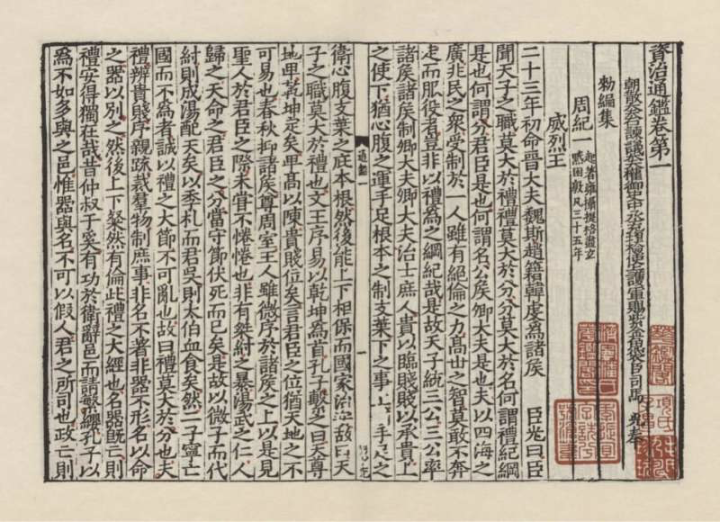 資治通鑑卷第一
朝散大夫諫議大夫權御史中丞充理檢使上護軍賜紫金魚袋臣司馬光奉
勑編集
周紀一
起著雍攝提格盡玄
黓困敦凡三十五年
威烈王
二十三年初命晉大夫魏斯趙籍韓虔為諸侯 臣光曰臣
聞天子之職莫大於禮禮莫大於分分莫大於名何謂禮紀綱
是也何謂分君臣是也何謂名公侯卿大夫是也夫以四海之
廣兆民之衆受制於一人雖有絕倫之力高世之智莫敢不奔
走而服役者豈非以禮為之綱紀哉是故天子統三公三公率
諸侯諸侯制卿大夫卿大夫治士庶人貴以臨賤賤以承貴上
之使下猶心腹之運手足根本之制支葉下之事上手足之
通鑑一
衛心腹支葉之庇本根然後能上下相保而國家治安故曰天
子之職莫大於禮也文王序易以乾坤為首孔子繫之曰天尊
地卑乾坤定矣卑高以陳貴賤位矣言君臣之位猶天地之不
可易也春秋抑諸侯尊周室王人雖微序於諸侯之上以是見
聖人於君臣之際未嘗不惓惓也非有桀紂之暴湯武之仁人
歸之天命之君臣之分當守節伏死而已矣是故以微子而代
紂則成湯配天矣以季札而君吳則太伯血食矣然二子寧亡
國而不為者誠以禮之大節不可亂也故曰禮莫大於分也夫
禮辨貴賤序親疏裁羣物制庶事非名不著非器不形名以命
之器以別之然後上下粲然有倫此禮之大經也名器既亡則
禮安得獨在哉昔仲叔于奚有功於衛辭邑而請繁纓孔子以
為不如多與之邑惟器與名不可以假人君之所司也政亡則